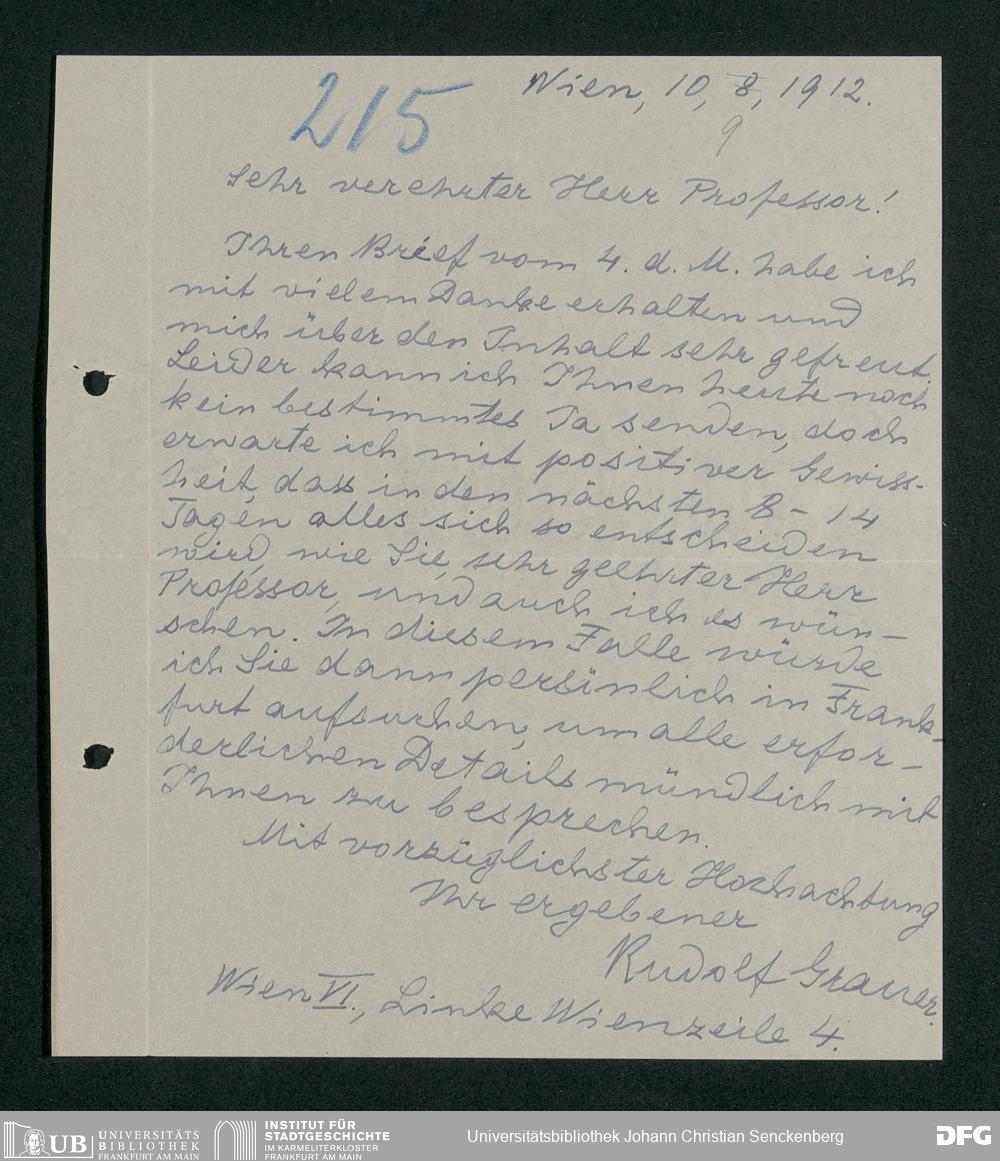 215
Wien, 10, 8, 1912.
9
Sehr verehrter Herr Professor!
Ihren Brief vom 4. d. M. habe ich
mit vielem Danke erhalten und
mich über den Inhalt sehr gefreut.
Leider kann ich Ihnen heute noch
kein bestimmtes Ja senden, doch
erwarte ich mit positiver Gewiss-
heit, dass in den nächsten 8 - 14
Tagen alles sich so entscheiden
wird, wie Sie, sehr geehrter Herr
Professor, und auch ich es wün-
schen. In diesem Falle würde
ich Sie dann persönlich in Frank-
furt aufsuchen, um alle erfor-
derlichen Details mündlich mit
Ihnen zu besprechen.
Mit vorzüglichster Hochachtung
Ihr ergebener
Rudolf Grauer.
Wien VI., Linke Wienzeile 4.
UB UNIVERSITÄTS
BIBLIOTHEK
FRANKFURT AM MAIN
INSTITUT FÜR
STADTGESCHICHTE
IM KARMELITERKLOSTER
FRANKFURT AM MAIN
Universitätsbibliothek Johann Christian Senckenberg
DFG